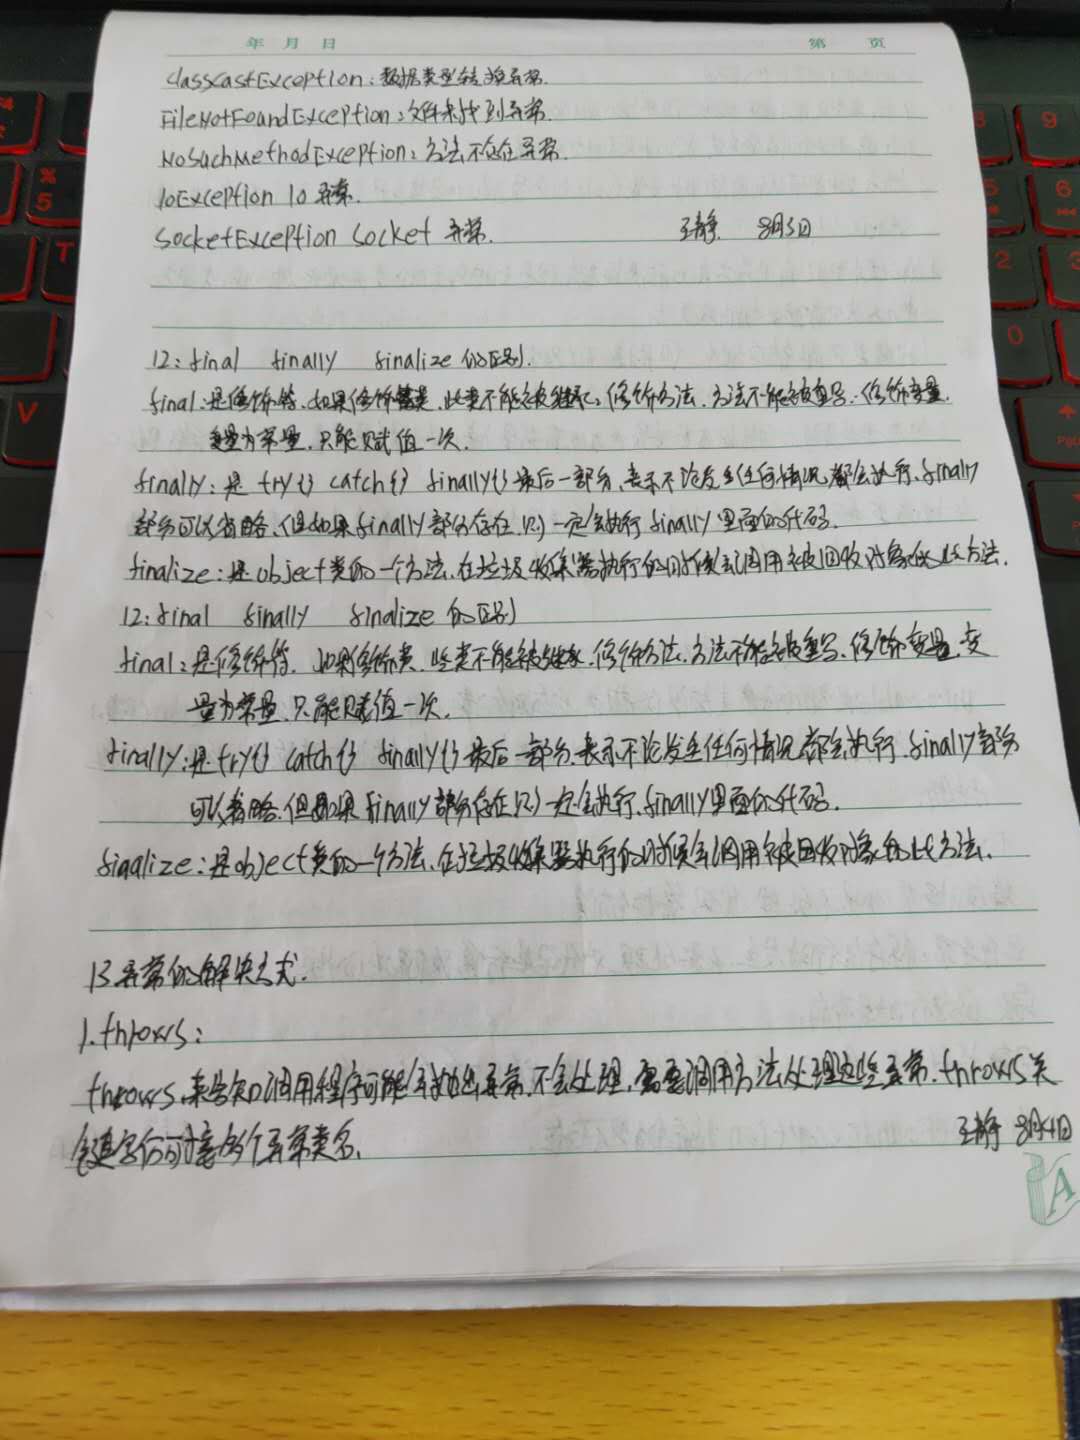 年 月 日 第 页
ClassCastException:数据类型转换异常.
FileNotFoundException:文件未找到异常.
NoSuchMethodException:方法不存在异常.
IoException Io 异常.
SocketException Socket 异常. 王静 8月3日
12:final finally finalize的区别.
final:是修饰符、如果修饰类,此类不能被继承、修饰方法、方法不能被重写、修饰变量.
变量为常量,只能赋值一次.
finally:是 try{} catch{} finally{}最后一部分、表示不论发生任何情况,都会执行、finally
部分可以省略、但如果finally部分存在,则一定会执行finally里面的代码.
finalize:是object类的一个方法、在垃圾收集器执行的时候会调用被回收对象的此方法.
12:final finally finalize的区别
final:是修饰符、如果修饰类、此类不能被继承、修饰方法、方法不能被重写、修饰变量、变
量为常量、只能赋值一次.
finally:是try{} catch{} finally{}最后一部分、表示不论发生任何情况,都会执行、finally部分
可以省略、但如果finally部分存在,则一定会执行、finally里面的代码.
finalize:是object类的一个方法、在垃圾收集器执行的时候会调用被回收对象的此方法.
13.异常的解决方式.
1.throws:
throws、来告知调用程序可能会抛出异常、不会处理、需要调用方法处理这些异常.throws关
键字何可接多个异常类名. 王静 8月4日
A